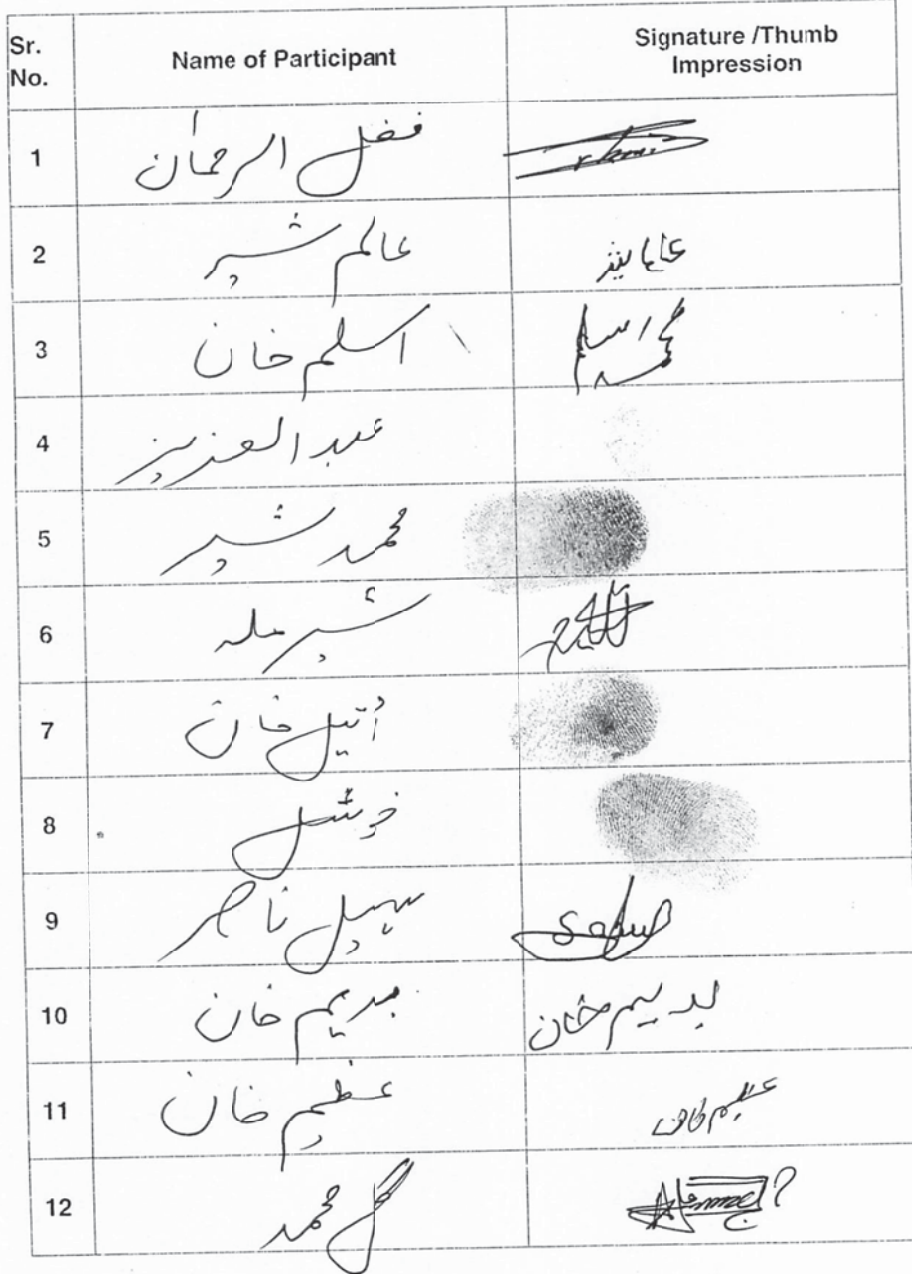 Sr. No. Name of Participant Signature /Thumb Impression
1 فضل الرحمان
2 عالم شیر
3 اسلم خان محمد اسلم
4 عبدالعزیز
5 محمد شیر
6 شیر
7 خان
8
9 سہیل ناصر
10 خان خان
11 عظیم خان عظیم خان
12 گل محمد